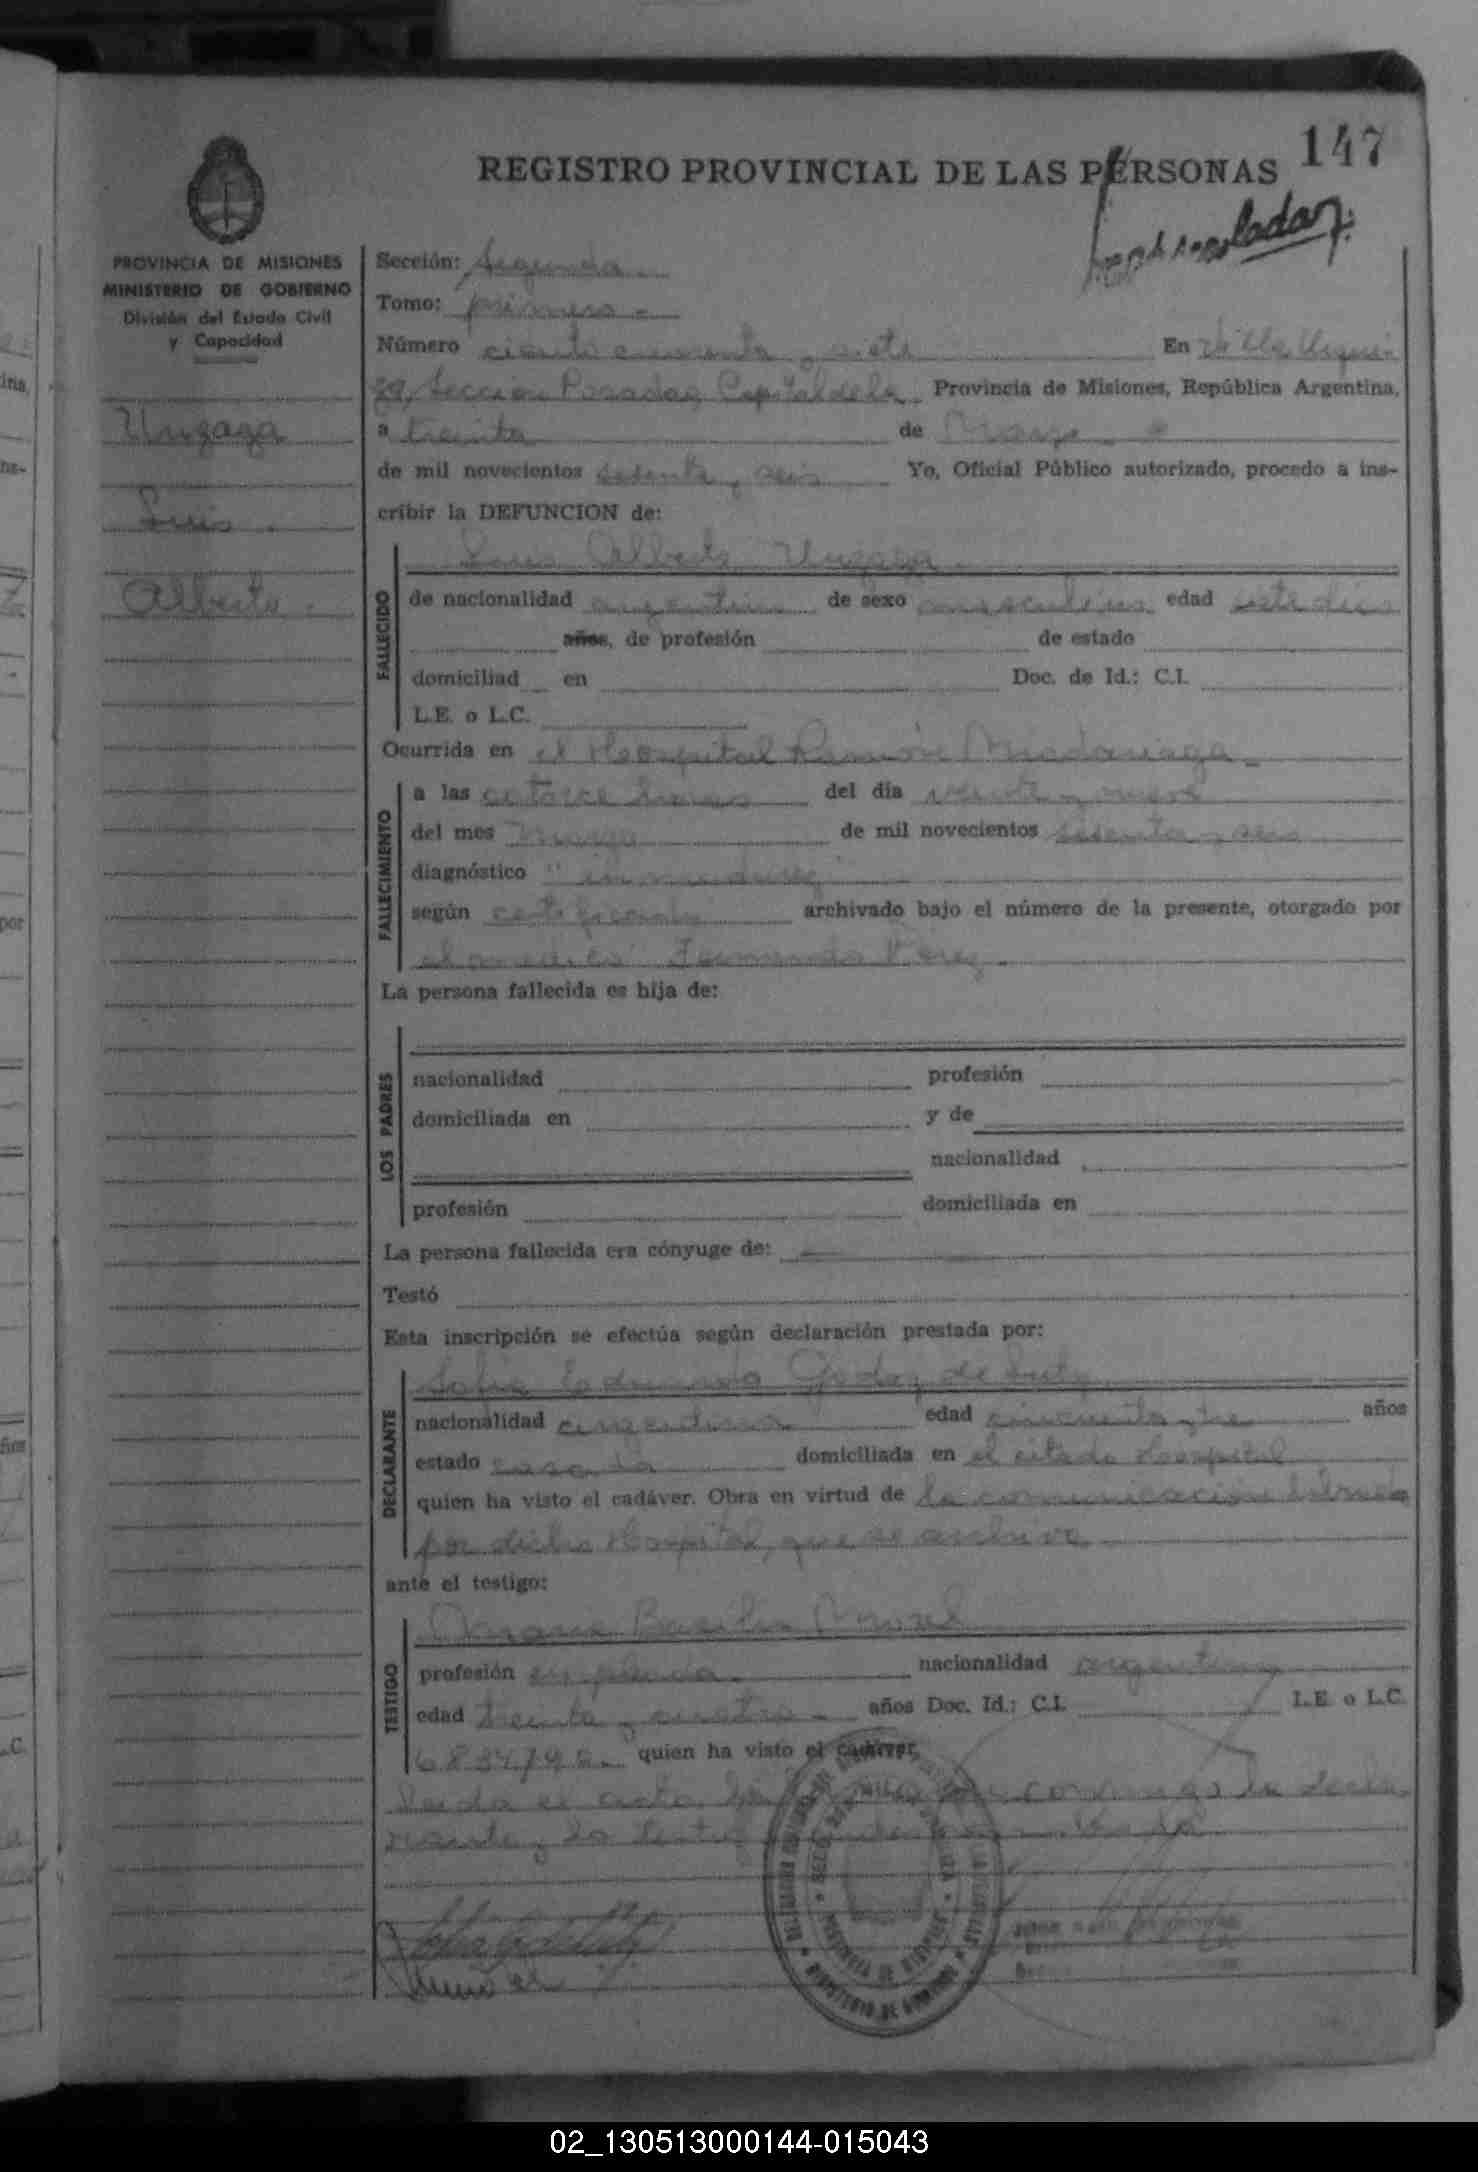 147
REGISTRO PROVINCIAL DE LAS PERSONAS
PROVINCIA DE MISIONES
MINISTERIO DE GOBIERNO
División del Estado Civil
y Capacidad
Unzaga
Luis
Alberto
Sección: Segunda
Tomo: primero
Número ciento cuarenta y siete En Villa Urquiza
Sección Posadas, Capital de la Provincia de Misiones, República Argentina,
a treinta de Marzo
de mil novecientos sesenta y seis Yo, Oficial Público autorizado, procedo a ins-
cribir la DEFUNCION de:
Luis Alberto Unzaga
FALLECIDO
de nacionalidad argentina de sexo masculino edad siete dias
años, de profesión de estado
domiciliad en Doc. de Id.: C.I.
L.E. o L.C.
Ocurrida en el Hospital Ramón Madariaga
FALLECIMIENTO
a las catorce horas del día veinte y nueve
del mes Marzo de mil novecientos sesenta y seis
diagnóstico "inmadurez"
según certificado archivado bajo el número de la presente, otorgado por
el medico Fernando
La persona fallecida es hija de:
LOS PADRES
nacionalidad profesión
domiciliada en y de
nacionalidad
profesión domiciliada en
La persona fallecida era cónyuge de:
Testó
Esta inscripción se efectúa según declaración prestada por:
DECLARANTE
Godoy de
nacionalidad argentina edad cincuenta y tres años
estado casada domiciliada en el citado Hospital
quien ha visto el cadáver. Obra en virtud de la comunicación librada
por dicho Hospital, que se archiva
ante el testigo:
TESTIGO
Maria Basilia Morel
profesión empleada nacionalidad argentina
edad treinta y cuatro años Doc. Id.: C.I. L.E. o L.C.
quien ha visto el cadáver,
Leida el acta, conmigo la decla
rante y la testigo
PROVINCIA DE MISIONES
MINISTERIO DE GOBIERNO
02_130513000144-015043